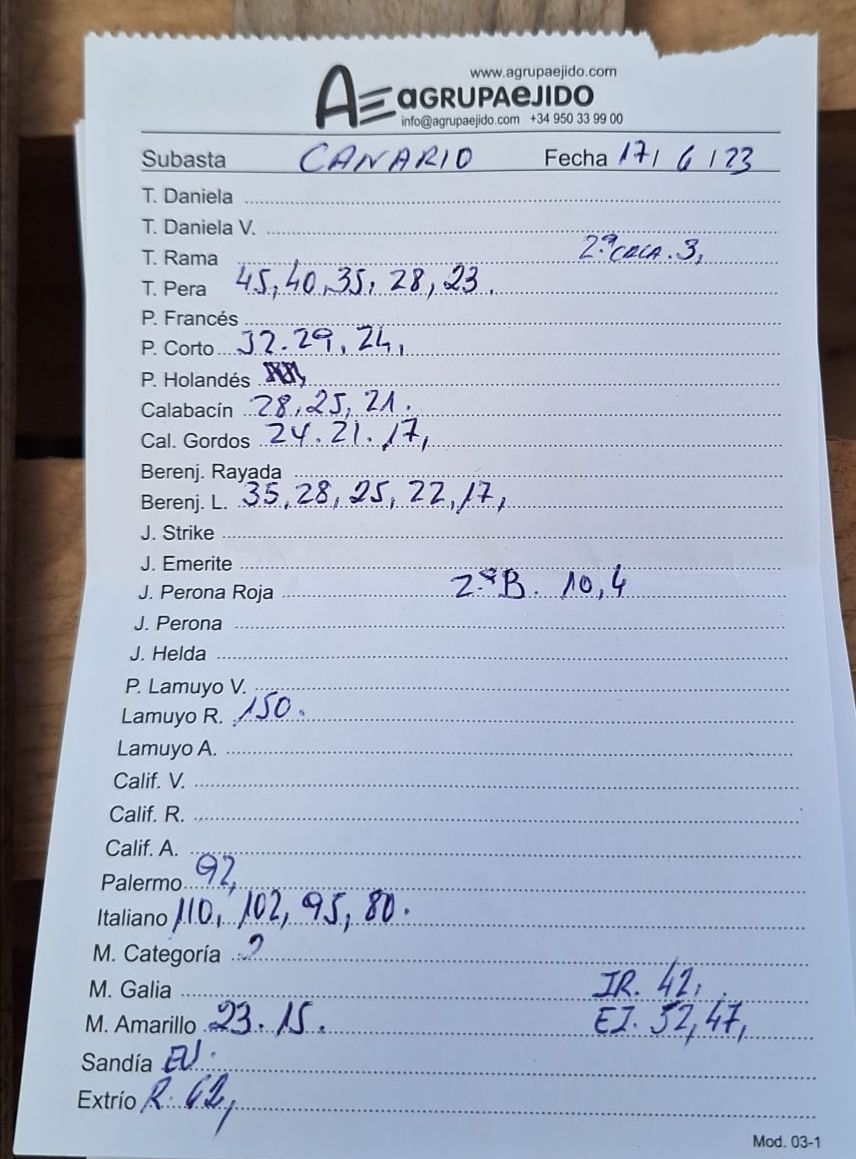 www.agrupaejido.com
AE aGRUPAeJIDO
info@agrupaejido.com +34 950 33 99 00
Subasta CANARIO Fecha 17/6/23
T. Daniela
T. Daniela V.
T. Rama 2ª COCA. 3,
T. Pera 45, 40, 35, 28, 23.
P. Francés
P. Corto 32. 29, 24,
P. Holandés
Calabacín 28, 25, 21.
Cal. Gordos 24. 21. 17,
Berenj. Rayada
Berenj. L. 35, 28, 25, 22, 17,
J. Strike
J. Emerite
J. Perona Roja 2.ª B. 10,4
J. Perona
J. Helda
P. Lamuyo V.
Lamuyo R. 150.
Lamuyo A.
Calif. V.
Calif. R.
Calif. A.
Palermo 92,
Italiano 110, 102, 95, 80.
M. Categoría
M. Galia IR. 42,.
M. Amarillo 23. 15. EJ. 52, 47,
Sandía
Extrío R. 62,
Mod. 03-1